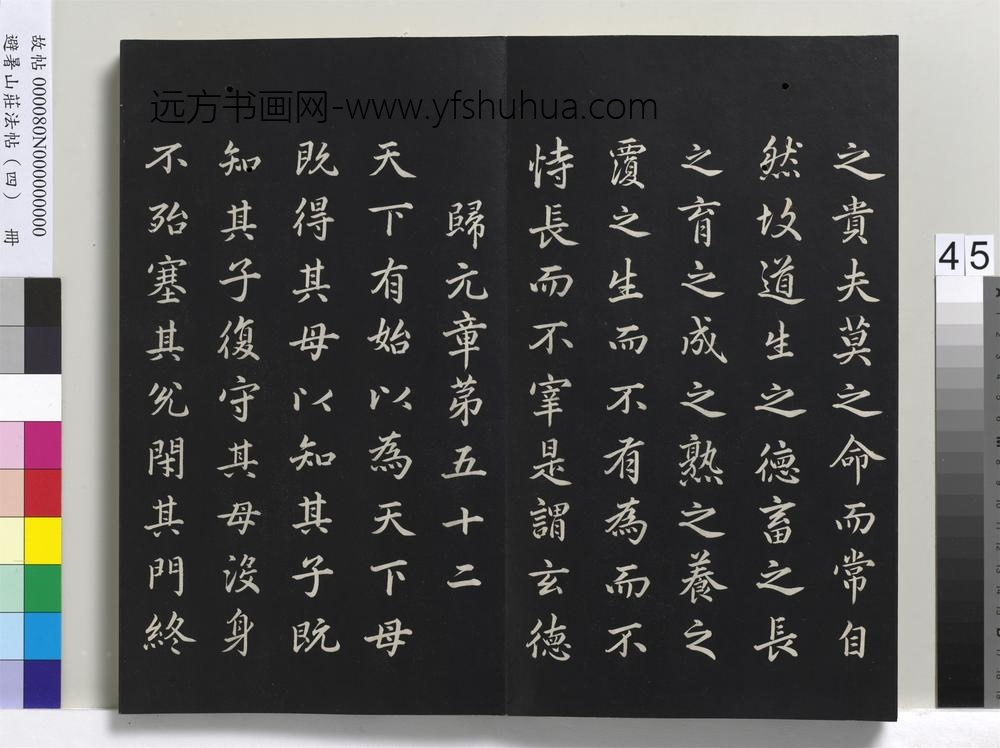 之貴夫莫之命而常自
然故道生之德畜之長
之育之成之熟之養之
覆之生而不有為而不
恃長而不宰是謂玄德
歸元章第五十二
天下有始以為天下母
既得其母以知其子既
知其子復守其母沒身
不殆塞其兊閉其門終
远方书画网-www.yfshuhua.com
故帖 000080N000000000
避暑山莊法帖(四) 冊
45